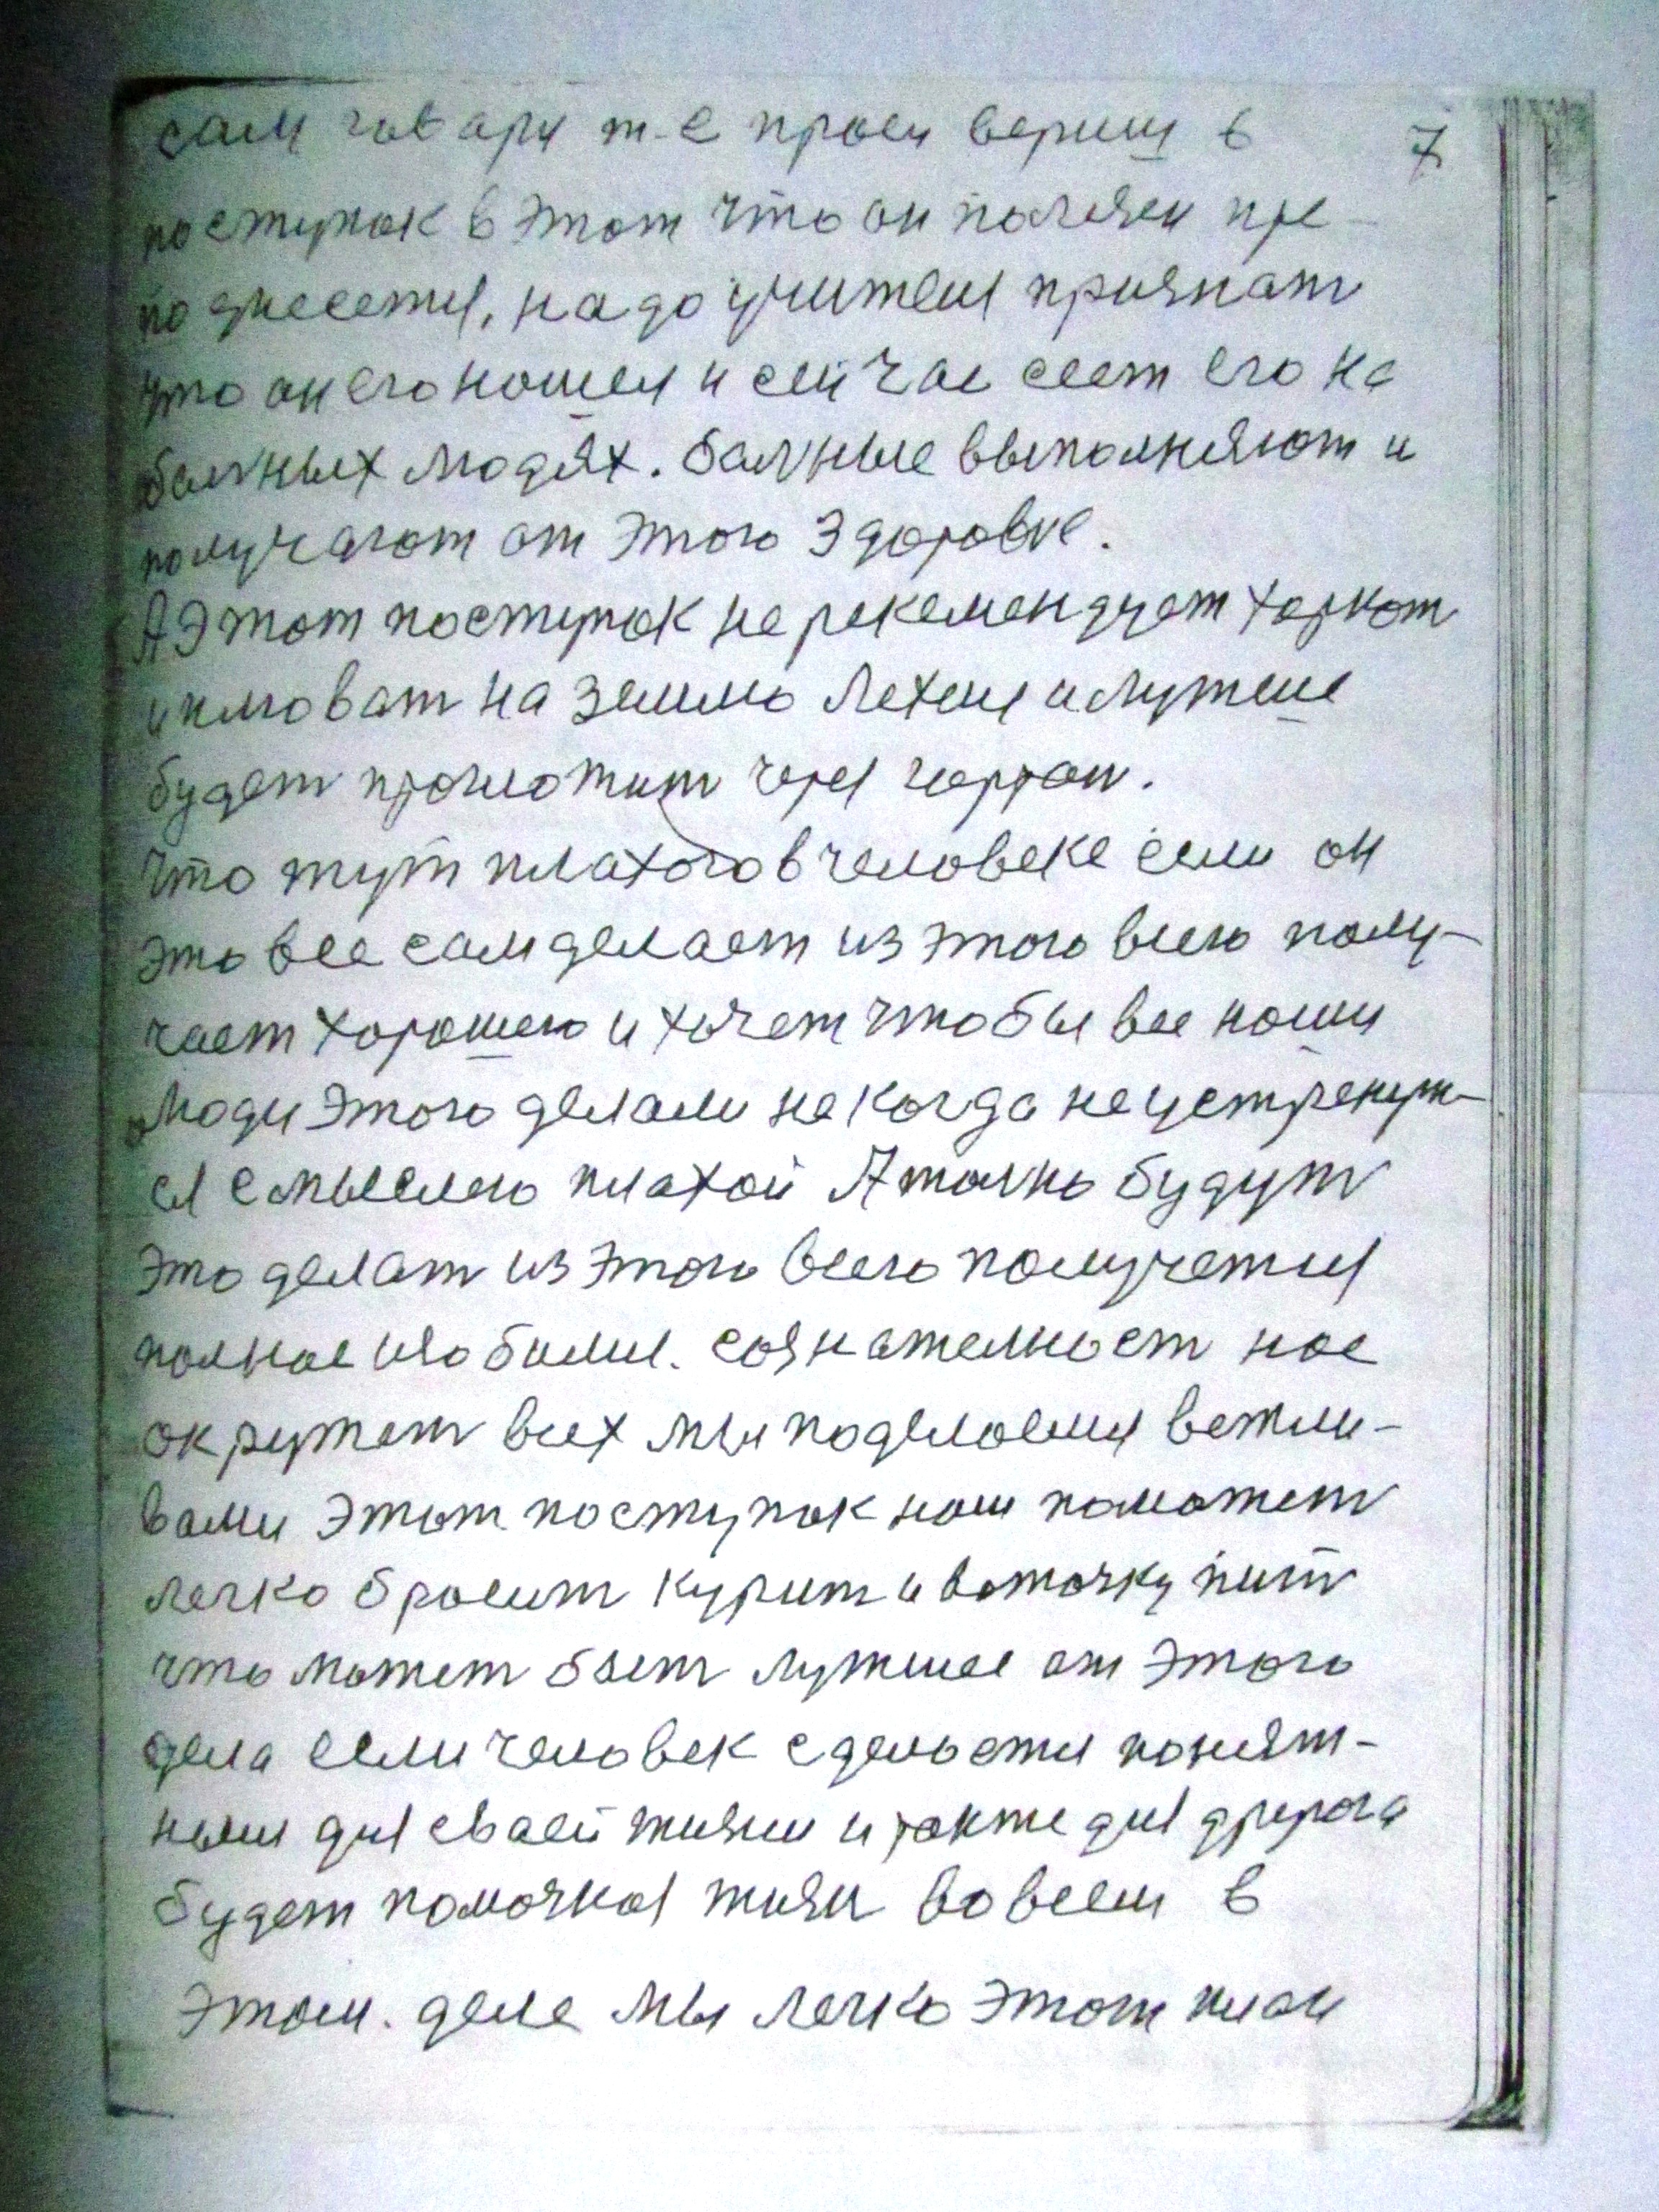 сам говари т-е проси вериш в 7
поступок в этот что он палезен пре-
поднесется, надо учителя признат
что он его нашел и сейчас сеет его на
балных людях. балные выполняют и
получают от этого здоровие.
А этот поступок не рекемендует харкат
и плюват на землю легхче и лутше
будет проглотит через гортан.
Что тут плахого в человеке если он
это все сам делает из этого всего полу-
чает хорошего и хочет чтобы все наши
люди этого делали некогда не устренут-
ся с мыслею плахой А толко будут
это делат из этого всего получется
полное изобилия. сознателност нас
окружет всех мы поделаемся вежли-
вами этот поступок нам паможет
легко бросит курит и вотачку пит
что может быт лутшее от этого
дела если человек сделается понят-
ным для сваей жизни и также для другога
будет помочная жизн во всем в
этом. деле мы легко этот план